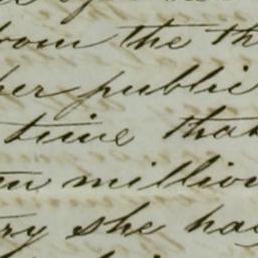 from the th
her public
time that
million
try she had